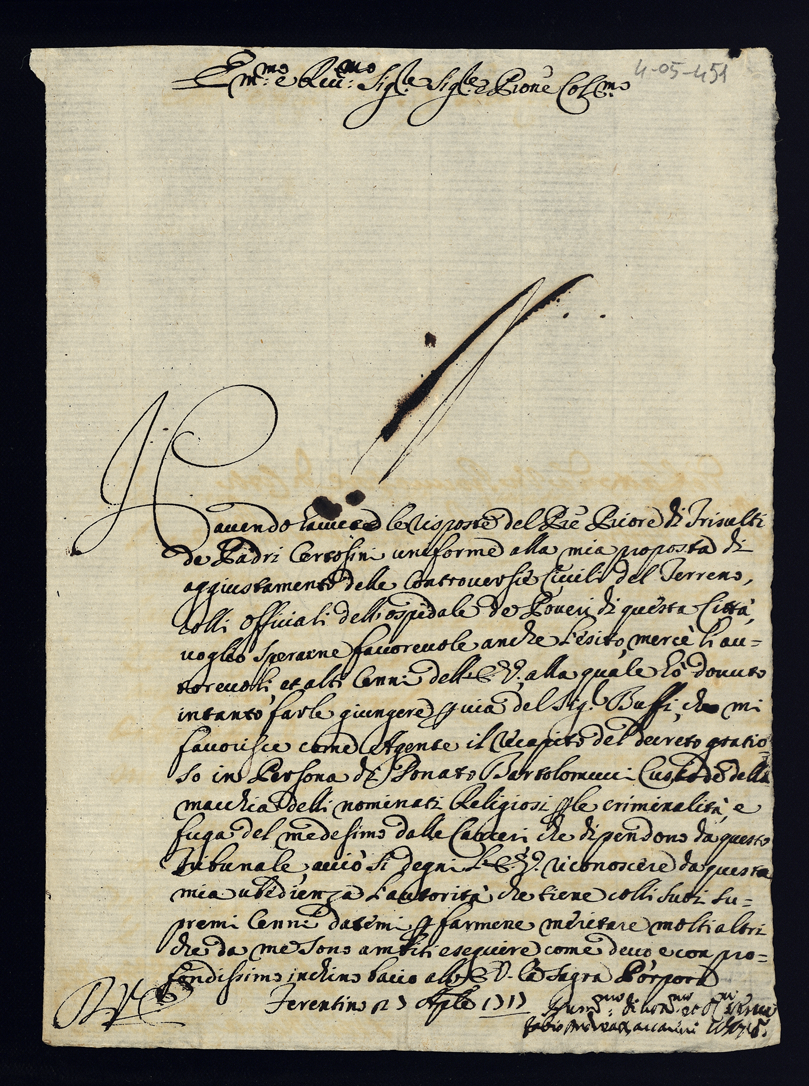 4-05-451
Em.mo e Rev.mo Sig.re Sig.re e Pron̄e Col.mo
Havendo havute le risposte del Prē Priore di Trisulti
de Padri Certosini uniforme alla mia proposta di
aggiustamento delle Controversie Civili del Terreno,
colli officiali dell'ospedale de Poveri di questa Città,
voglio sperarne favorevole anche l'esito, mercè li au=
torevoli, et alti Cenni dell'E. V. alla quale hò dovuto
intanto farle giungere p via del Sig. Buffi, che mi
favorisce come Agente il recapito del decreto gratio=
so in Persona di Donato Bartolomucci Custode della
macchia delli nominati Religiosi p le criminalità, e
fuga del medesimo dalle Carceri che dipendono da questo
Tribunale, acciò si degni l'E. V. riconoscere da questa
mia ubidienza l'autorità che tiene colli suoi su=
premi Cenni datemi p farmene meritare molti altri
che da me sono ambiti eseguire come devo e con pro=
fondissimo inchino bacio all'E. V. la Sagra Porpora
Ferentino Aple 1717